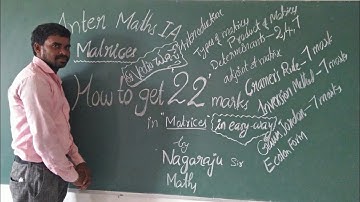 Inter Maths IA
Matrices
Introduction
Types of matrices
Product of Matrices
Determinants - 2/4, 7
adjoint of matrix
How to get '22' marks
in "Matrices" in easy-way
by
Nagaraju Sir
Maths
Cramer's Rule - 7 marks
Inversion Method - 7 marks
Gauss Jordan - 7 marks
Echelon Form